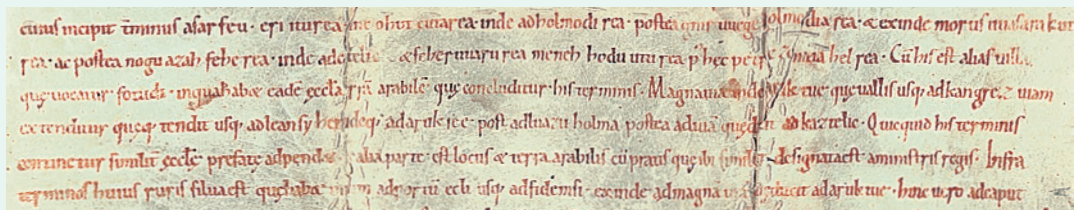 cuius incipit tminus asar feu · eri iturea hinc ohut cutarea · inde adholmodi rea · postea gnir uuege holmodia rea · & exinde mortis uuasara kut
rea · ac postea nogu azah fehe rea · inde ad castelic & feheruuaru rea meneh hodu utu rea p' hęc petre zenaia hel rea · Cū his est alia uilla
que uocatur fotudi · in qua habet eadē ęccła t̄rā arabilē · quę concluditur his terminis · Magna uia & inde aruk tue · quę uallis usq; ad kangrez uiam
extenditur queq; tendit usq; ad leansyher ideq; ad aruk fee · post ad luazu holma postea ad uiā quę ducit ad kaztelic · Quicquid his terminis
continetur similit ęccłę prefatę adpendet · Ex alia parte · est locus & terra arabilis cū pratis que ibi similit designata est a ministris regis · Infra
terminos huius ruris silua est quę habet uiam ad portū ecli usq; ad fidemsi · exinde ad magnā uiā quę ducit ad aruk tue · hinc uero ad caput